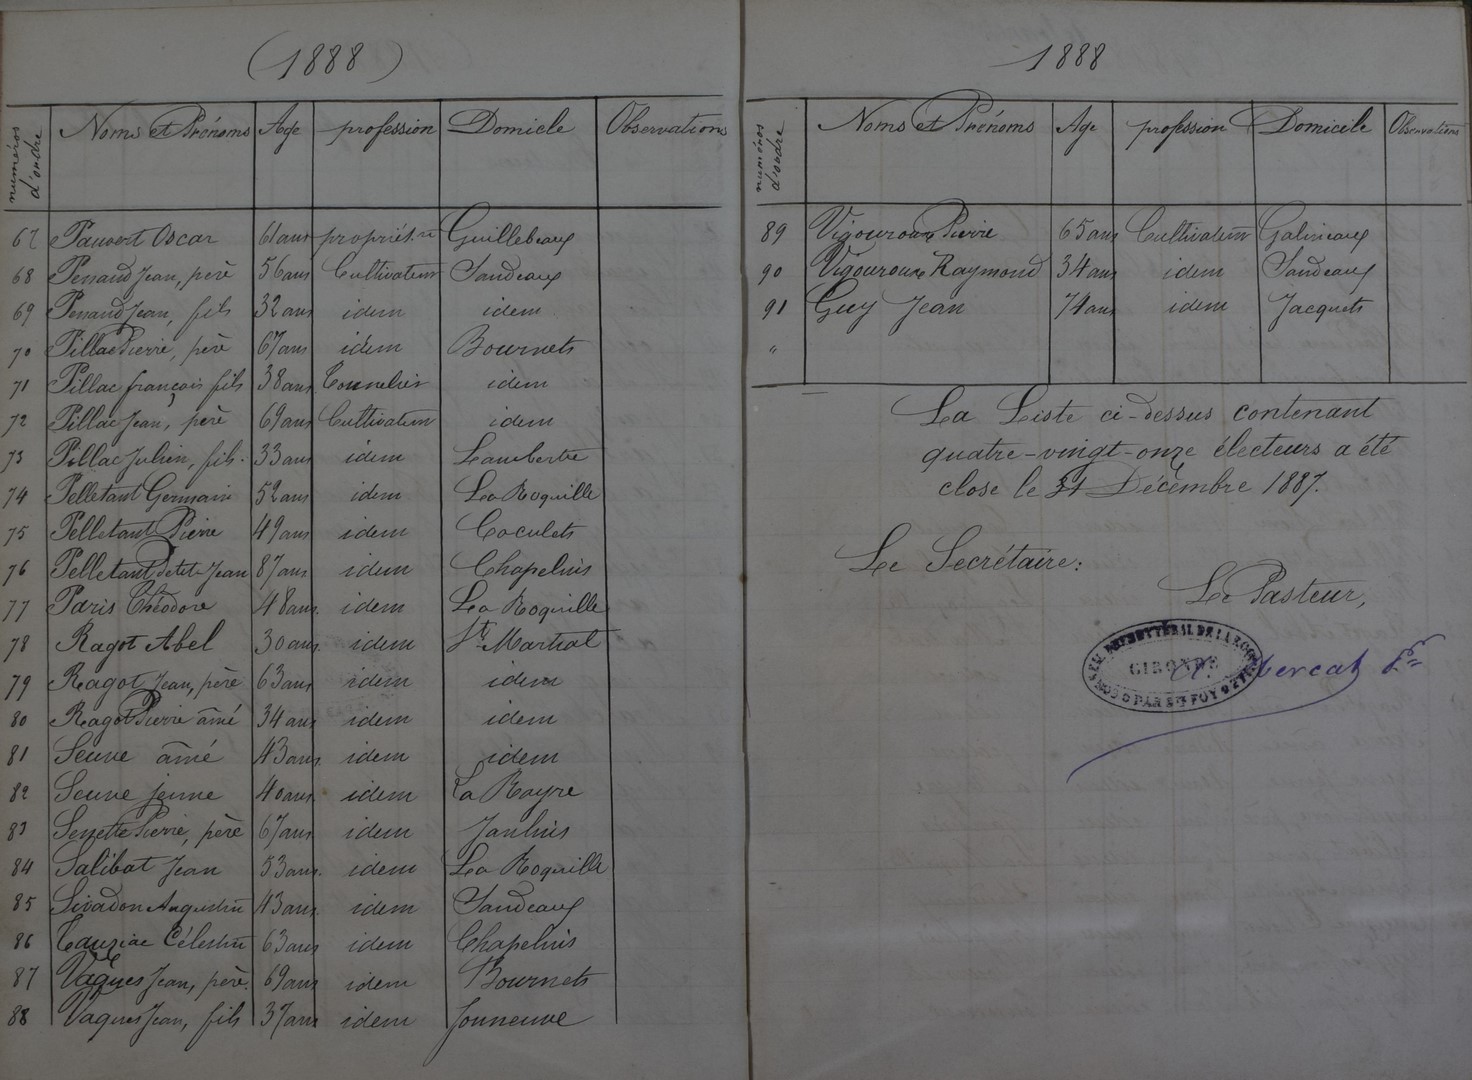 (1888)
numéros d'ordre Noms et Prénoms Age profession Domicile Observations
67 Pauvert Oscar 61 ans propriét.re Guillebeaux
68 Penaud Jean, père 56 ans Cultivateur Sandeaux
69 Penaud Jean, fils 32 ans idem idem
70 Pillac Pierre, père 67 ans idem Bournets
71 Pillac françois fils 38 ans Tonnelier idem
72 Pillac Jean, père 69 ans Cultivateur idem
73 Pillac Julien, fils. 33 ans idem Lambertie
74 Pelletant Germain 52 ans idem La Roquille
75 Pelletant Pierre 49 ans idem Coculets
76 Pelletant Petit-Jean 87 ans idem Chapelnis
77 Paris Théodore 48 ans. idem La Roquille
78 Ragot Abel 30 ans idem St Martial
79 Ragot Jean, père 63 ans idem idem
80 Ragot Pierre aîné 34 ans idem idem
81 Seuve aîné 43 ans idem idem
82 Seuve jeune 40 ans idem La Rayre
83 Pierre, père 67 ans idem
84 Salibat Jean 53 ans. idem La Roquille
85 Sivadon Augustin 43 ans. idem Sandeaux
86 Tauziac Célestin 63 ans idem Chapelnis
87 Vaques Jean, père. 69 ans idem Bournets
88 Vaques Jean, fils 37 ans idem Fonneuve
1888
numéros d'ordre Noms et Prénoms Age profession Domicile Observations
89 Vigouroux Pierre 65 ans Cultivateur Galineaux
90 Vigouroux Raymond 34 ans idem Sandeaux
91 Guy Jean 74 ans idem Jacquets
"
La Liste ci-dessus contenant
quatre-vingt-onze électeurs a été
close le 31 Décembre 1887.
Le Secrétaire:
Le Pasteur,
GIRONDE